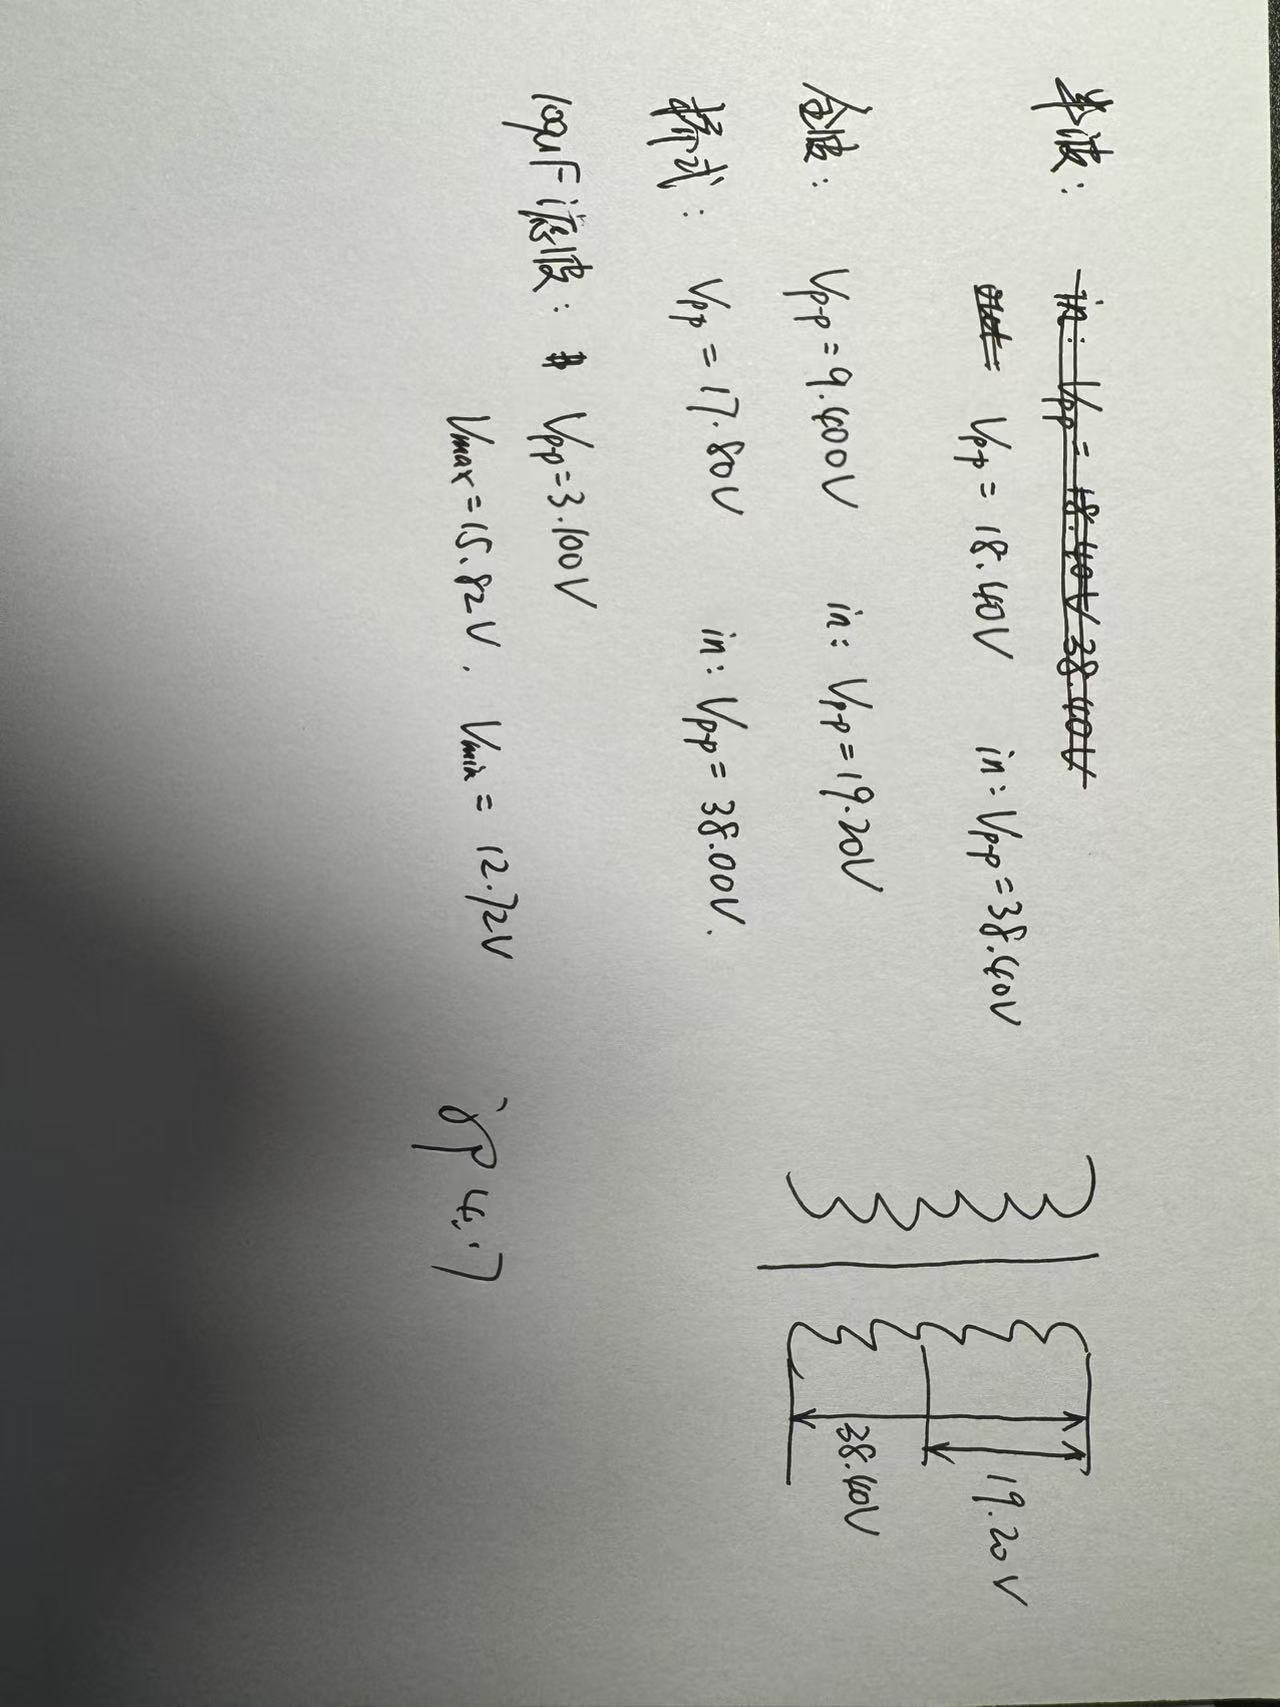 半波： in: Vpp = 18.40V 38.40V
out= Vpp = 18.40V in: Vpp=38.40V
全波： Vpp=9.400V in: Vpp=19.20V
桥式： Vpp = 17.80V in: Vpp = 38.00V.
100μF滤波： Vpp=3.100V
Vmax=15.82V. Vmin= 12.72V
19.20V
38.40V